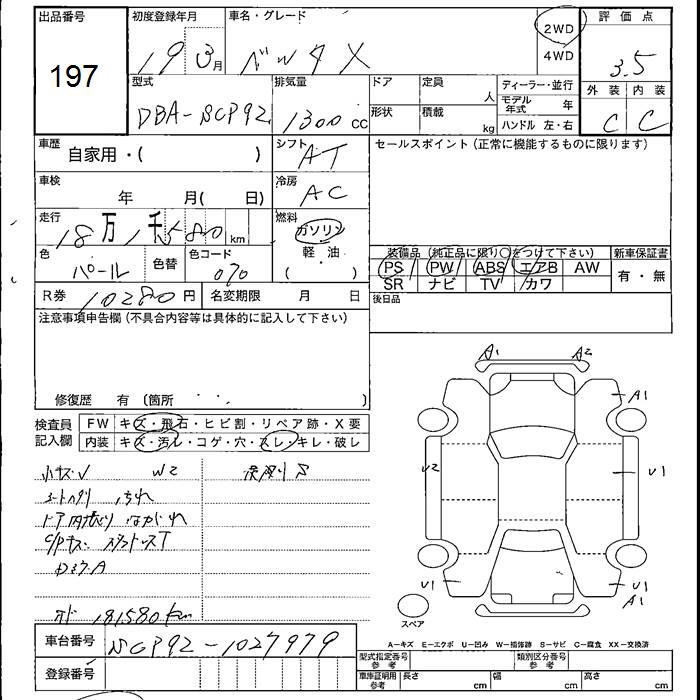 出品番号 初度登録年月 車名・グレード 2WD 評価点
197 19 3月 ベルタ X 4WD 3.5
型式 排気量 ドア 定員 人 ディーラー・並行 外装 内装
DBA-SCP92 1300 cc 形状 積載 kg モデル年式 年 C C
ハンドル 左・右
車歴 自家用・( ) シフト AT セールスポイント(正常に機能するものに限ります)
車検 年 月( 日) 冷房 AC
走行 18万 1千 580 km 燃料 ガソリン
色 パール 色替 色コード 070 軽・油 ( ) 装備品(純正品に限り○をつけて下さい) 新車保証書
PS PW ABS エアB AW 有・無
SR ナビ TV カワ
R券 10280円 名変期限 月 日 後日品
注意事項申告欄(不具合内容等は具体的に記入して下さい)
修復歴 有 〔箇所 〕
A1 A2
A1
U2 U1
U1 U1
A1
スペア
検査員記入欄 FW キズ・飛石・ヒビ割・リペア跡・X要
内装 キズ・汚レ・コゲ・穴・スレ・キレ・破レ
小キズU W2
181580km
A-キズ E-エクボ U-凹み W-補修跡 S-サビ C-腐食 XX-交換済
車台番号 SCP92-1027979
登録番号
型式指定番号 参考 類別区分番号 参考
車庫証明用 参考 長さ cm 幅 cm 高さ cm